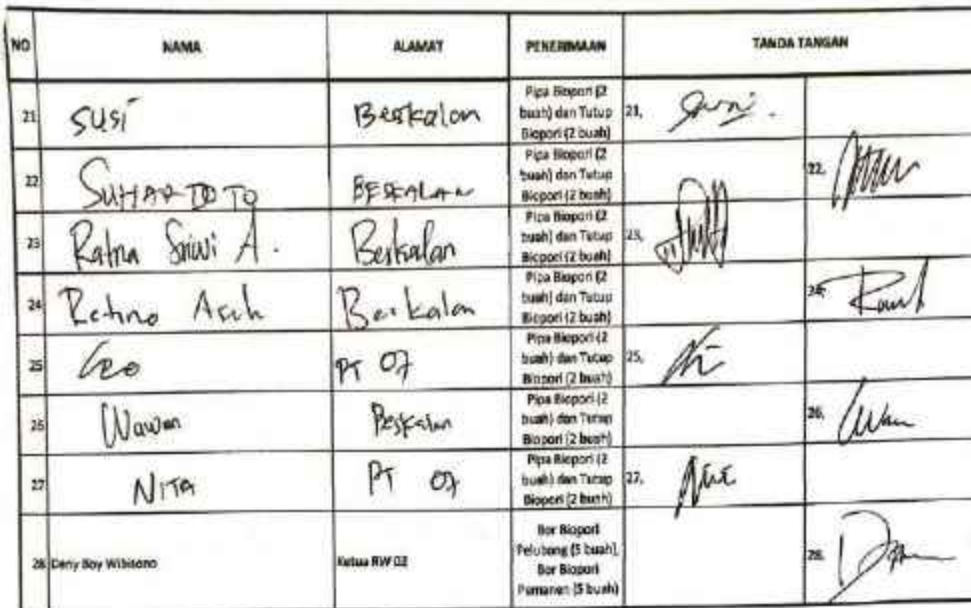 NO NAMA ALAMAT PENERIMAAN TANDA TANGAN
21 Susi Berkalon Pipa Biopori (2 buah) dan Tutup Biopori (2 buah) 21,
22 SUHARTOTO BESKALAN Pipa Biopori (2 buah) dan Tutup Biopori (2 buah) 22,
23 Ratna Sriwi A. Berkalan Pipa Biopori (2 buah) dan Tutup Biopori (2 buah) 23,
24 Retno Asih Berkalan Pipa Biopori (2 buah) dan Tutup Biopori (2 buah) 24,
25 Leo RT 07 Pipa Biopori (2 buah) dan Tutup Biopori (2 buah) 25,
26 Wawan Beskalan Pipa Biopori (2 buah) dan Tutup Biopori (2 buah) 26, Wan
27 NITA RT 07 Pipa Biopori (2 buah) dan Tutup Biopori (2 buah) 27,
28 Deny Boy Wibisono Ketua RW 02 Bor Biopori Pelubang (5 buah), Bor Biopori Pemanen (5 buah) 28.